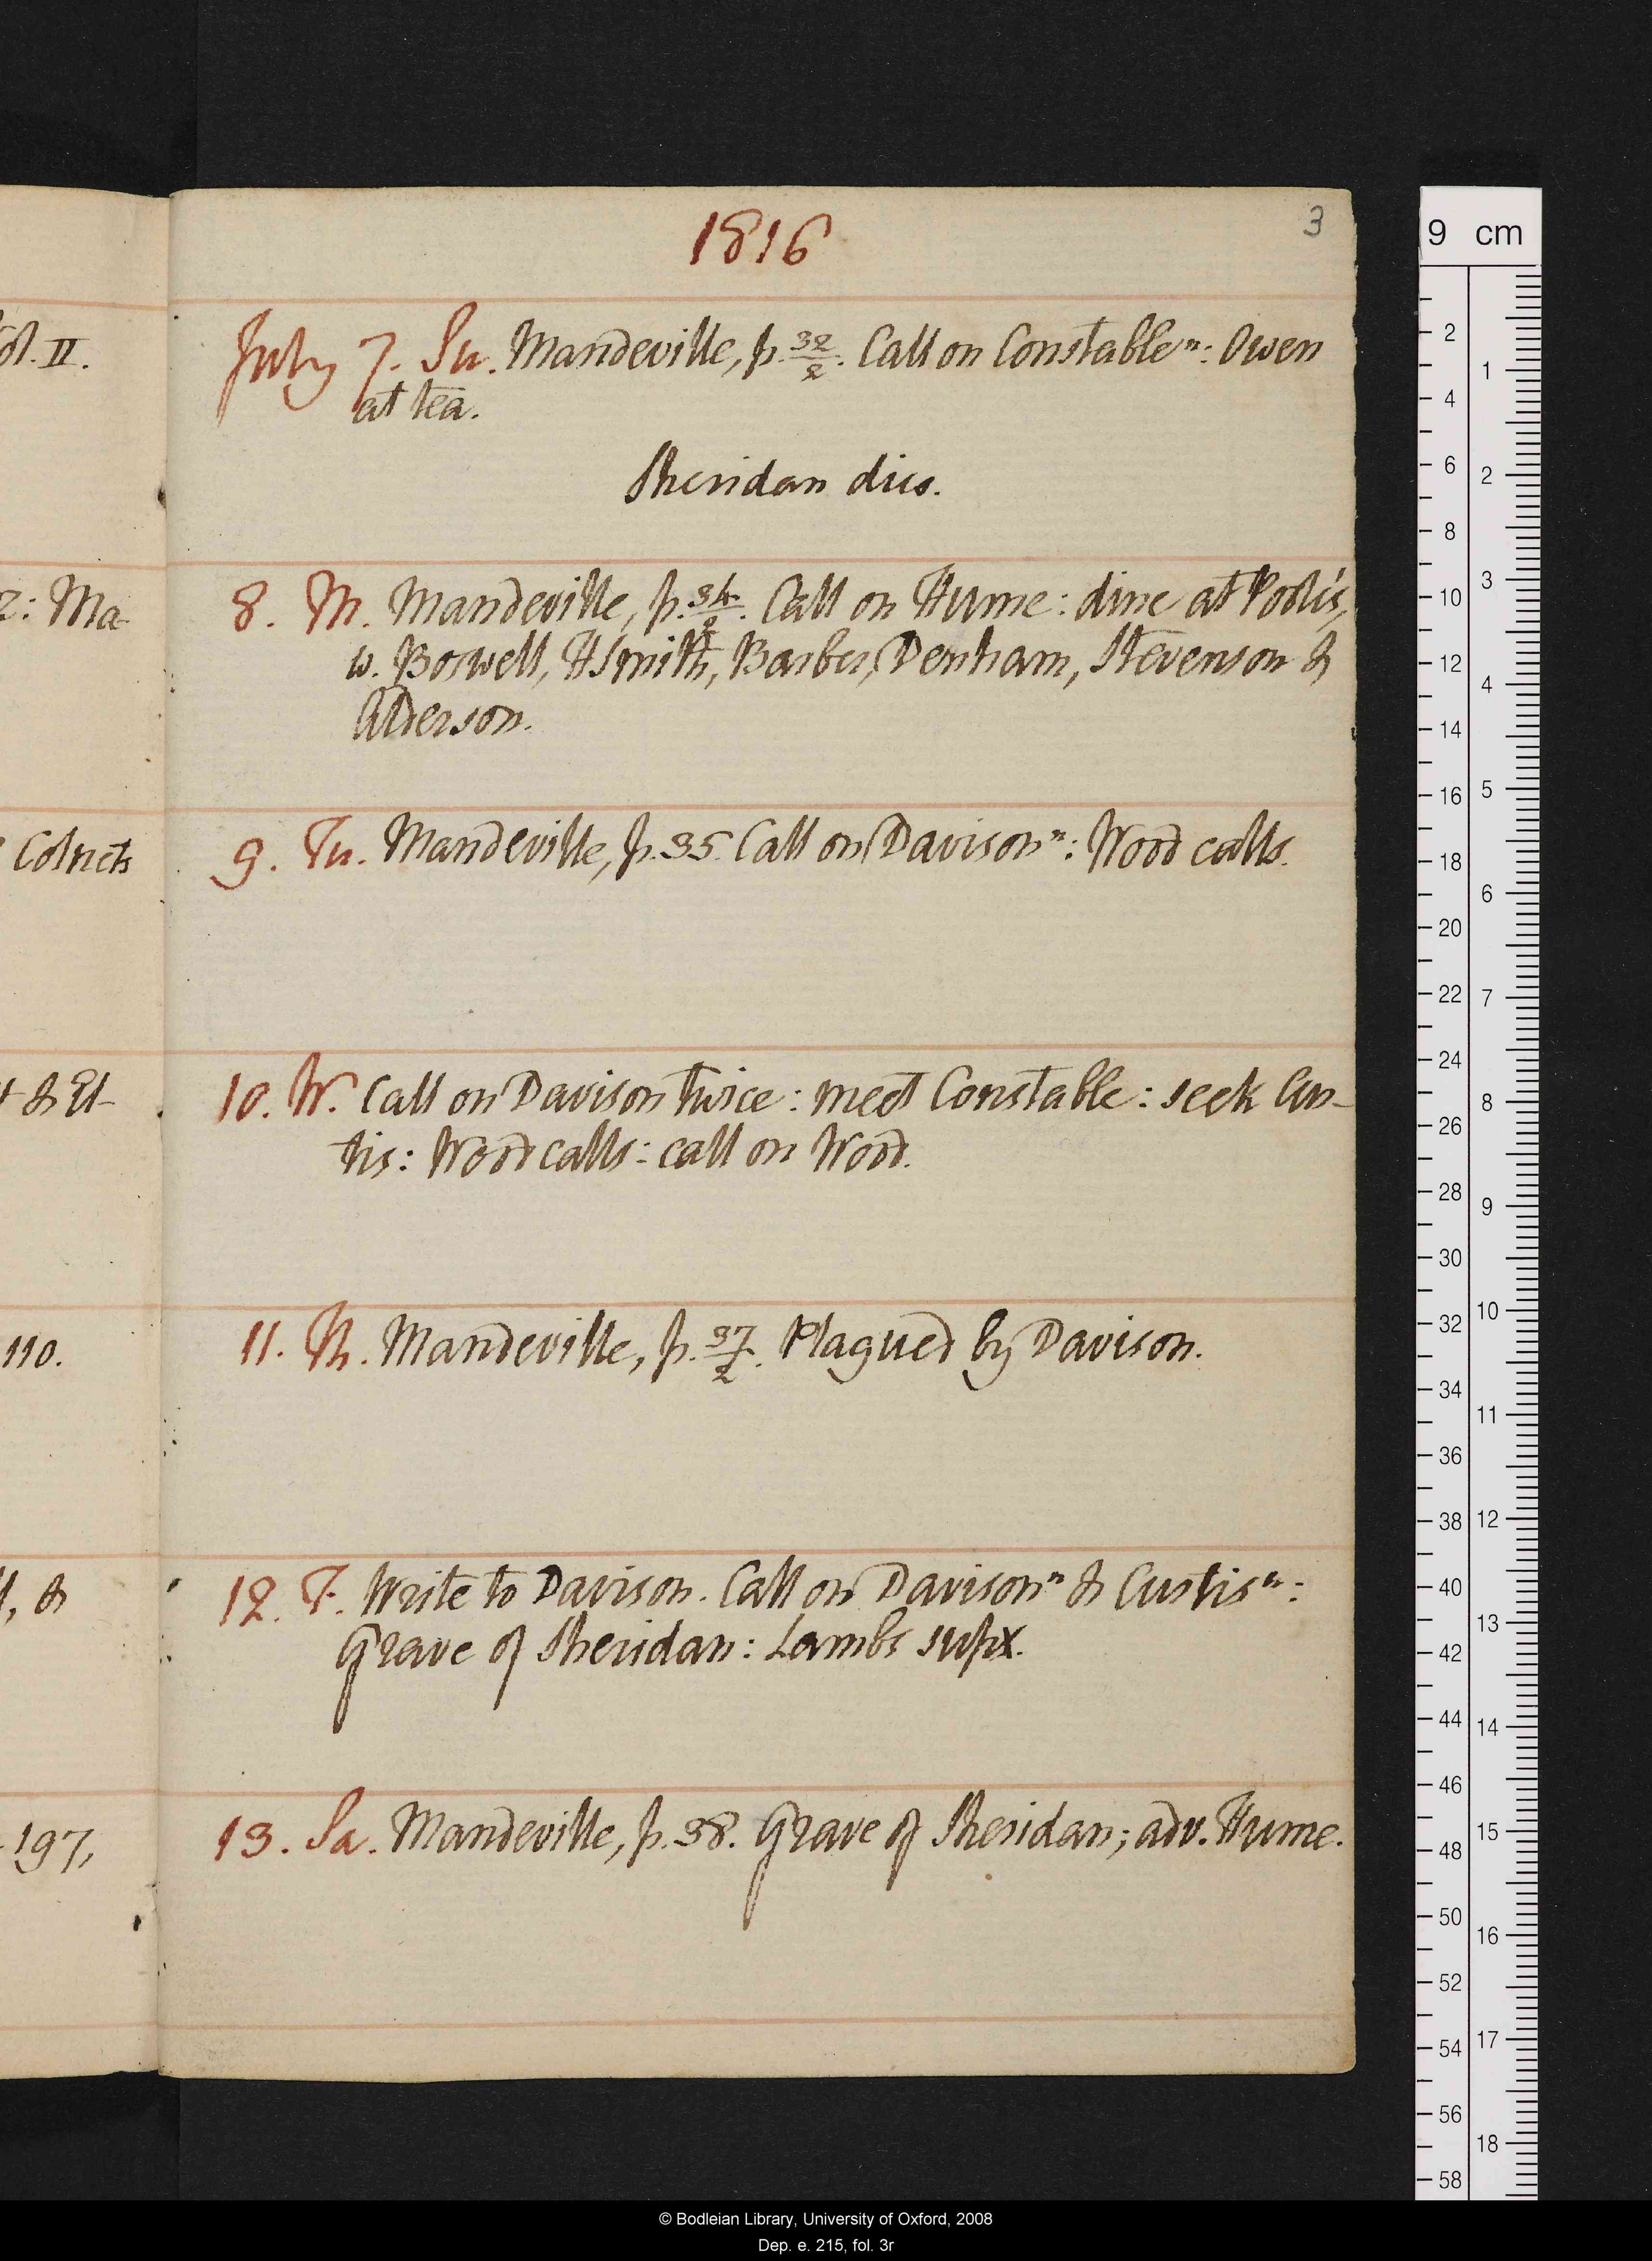 1816
3
July 7. Su. Mandeville, p. 32/2. Call on Constableⁿ: Owen
at tea.
Sheridan dies.
8. M. Mandeville, p. 34/2. Call on Hume: dine at Pode's,
w. Boswell, HSmith, Barber, Denham, Stevenson &
Alderson.
9. Tu. Mandeville, p. 35. Call on Davisonⁿ: Wood calls.
10. W. Call on Davison twice: meet Constable: seek Cur-
tis: Wood calls: call on Wood.
11. Th. Mandeville, p. 37/2. Plagued by Davison.
12. F. Write to Davison. Call on Davisonⁿ & Curtisⁿ:
Grave of Sheridan: Lambs sup x.
13. Sa. Mandeville, p. 38. Grave of Sheridan; adv. Hume.
ol. II.
2: Ma-
Colnets
& El-
110.
, &
197,
9 cm
2 4 6 8 10 12 14 16 18 20 22 24 26 28 30 32 34 36 38 40 42 44 46 48 50 52 54 56 58
1 2 3 4 5 6 7 8 9 10 11 12 13 14 15 16 17 18
© Bodleian Library, University of Oxford, 2008
Dep. e. 215, fol. 3r